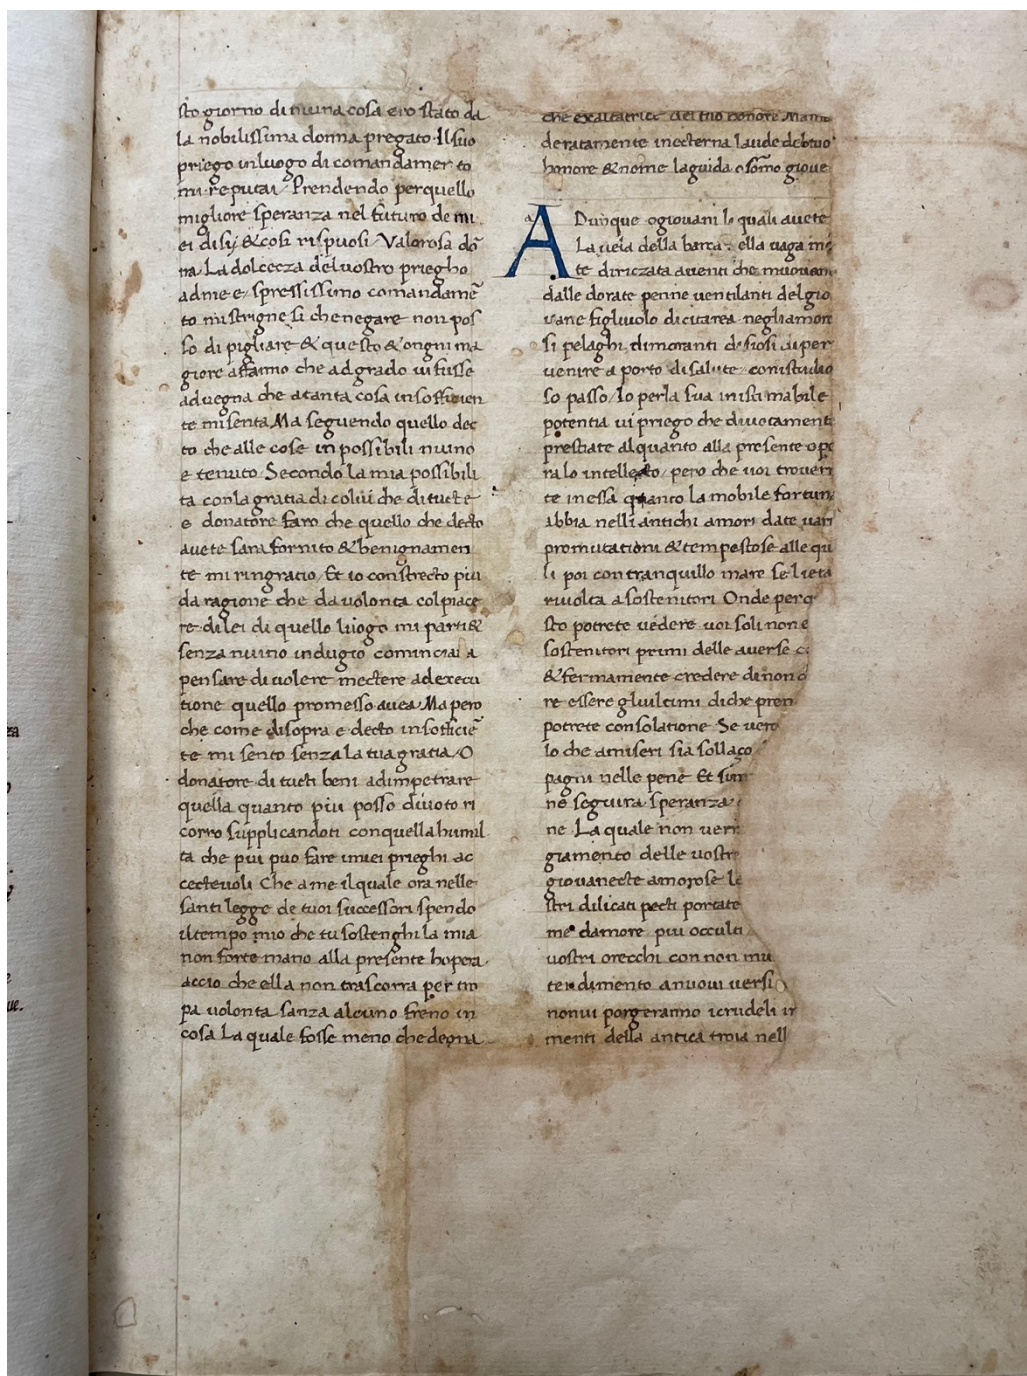 sto giorno di niuna cosa ero stato da
la nobilissima donna pregato. Il suo
priego in luogo di comandamento
mi reputai. Prendendo perquello
migliore speranza nel futuro de mi
ei disij & cosi rispuosi. Valorosa dō
na. La dolcecza del vostro priegho
ad me e spressissimo comandamē
to mi strigne si che negare non pos
so di pigliare & questo & ongni ma
giore affanno che ad grado vi fusse
advegna che atanta cosa insofficien
te misenta. Ma seguendo quello dec
to che alle cose in possibili niuno
e tenuto. Secondo la mia possibili
ta con la gratia di colui che di tucte
e donatore faro che quello che decto
avete sara fornito & benignamen
te mi ringratio. Et io constrecto piu
da ragione che da volonta col piace
re di lei di quello luogo mi parti &
senza niuno indugio cominciai a
pensare di volere mectere ad execu
tione quello promesso avea. Ma pero
che come disopra e decto insofficiē
te mi sento senza la tua gratia. O
donatore di tucti beni adimpetrare
quella quanto piu posso divoto ri
corro supplicandoti conquella humil
ta che piu puo fare imiei prieghi ac
cectevoli Che a me il quale ora nelle
santi legge de tuoi successori spendo
il tempo mio che tu sostenghi la mia
non forte mano alla presente hopera
accio che ella non trascorra per tro
pa volonta sanza alcuno freno in
cosa La quale fosse meno che degna
che exaltatrice del tuo honore Mamo
deratamente in etterna laude del tuo
honore & nome la guida o somo giove
A Dunque o giovani lo quali avete
La vela della barca ella vaga
te diriczata aventi che muovam
dalle dorate penne ventilanti del gio
vane figliuolo di citarea negli amoro
si pelaghi dimoranti disiosi di per
venire a porto di salute con istudio
so passo. Io per la sua inistimabile
potentia vi priego che divotamente
prestiate alquanto alla presente ope
ra lo intellecto, pero che voi trovere
te in essa quanto la mobile fortun
abbia nelli antichi amori date vari
promutationi & tempestose alle qu
li poi con tranquillo mare se lieta
rivolta a sostenitori Onde perq
sto potrete vedere voi soli non e
sostenitori primi delle averse c
& fermamente credere di non d
re essere gli ultimi di che pren
potrete consolatione Se vero
lo che a miseri sia sollaço
pagni nelle pene Et sim
ne seguira speranza
ne La quale non verr
giamento delle vostre
giovanecte amorose le
stri dilicati pecti portate
me damore piu occulti
vostri orecchi con non mu
tendimento a nuovi versi
non vi porgeranno i crudeli in
menti della antica troia nell